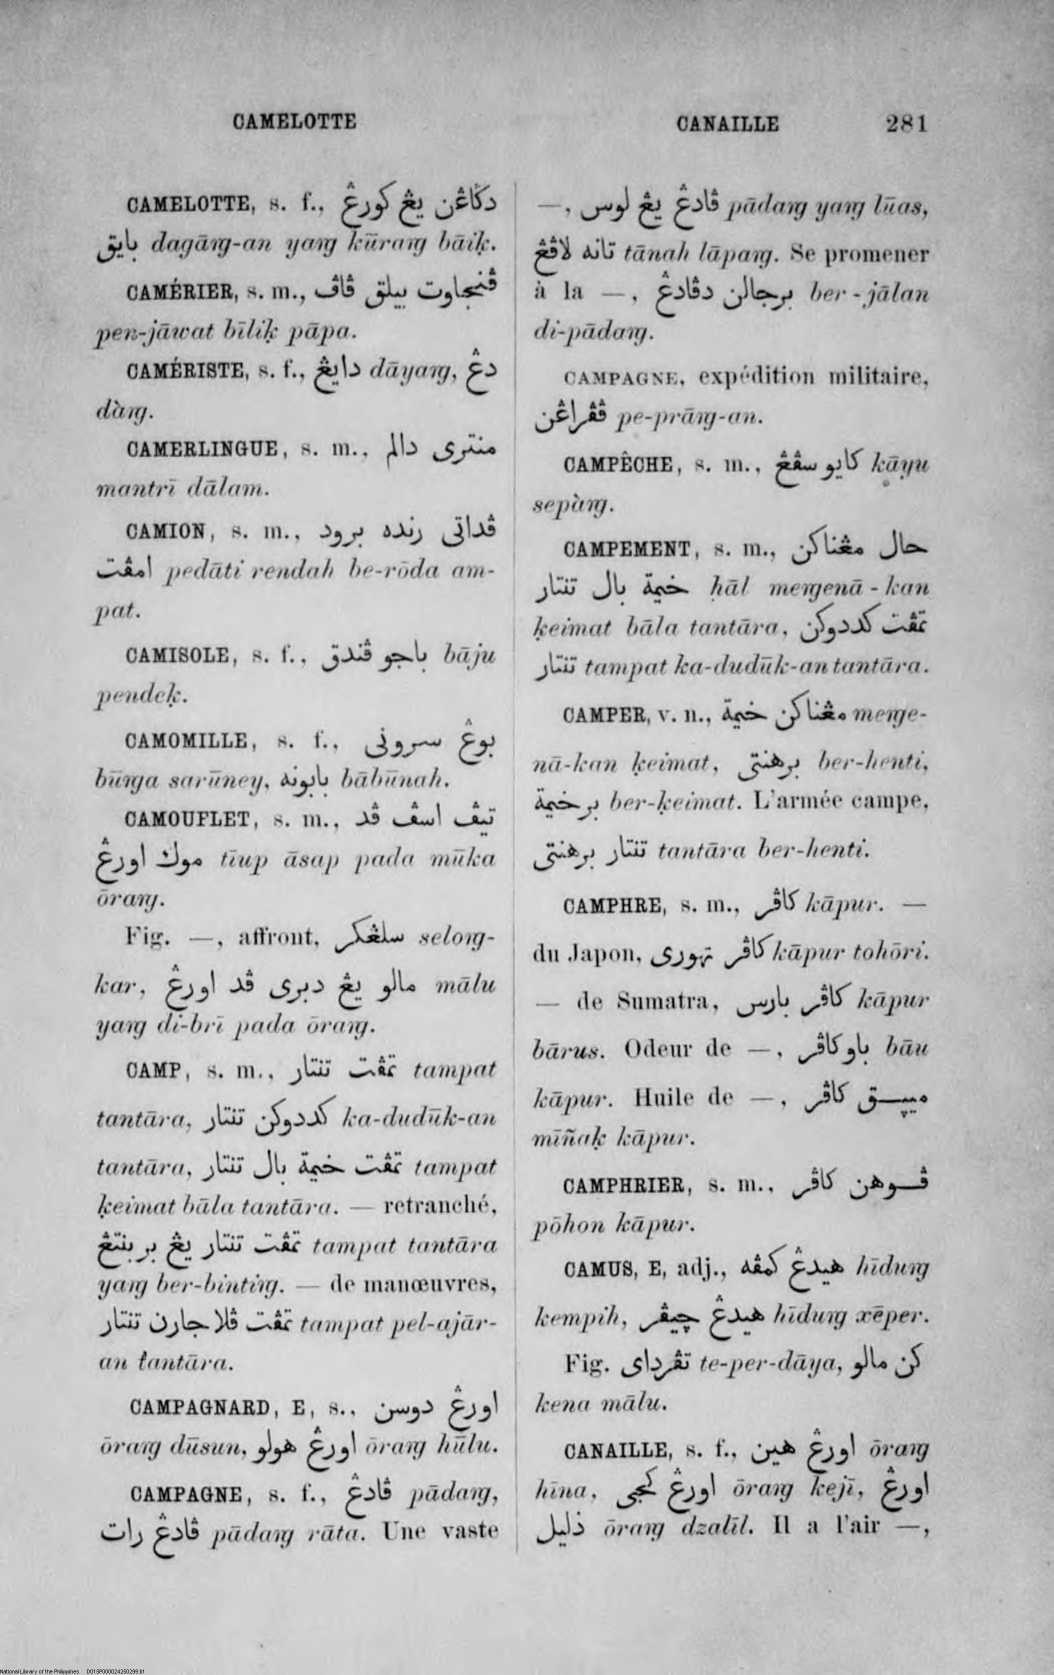 CAMELOTTE
CANAILLE 281
CAMELOTTE, s. f., دݢاڠن يڠ كورڠ
بايق dagāng-an yang kūrang bāiḳ.
CAMÉRIER, s. m., ڤنجاوت بيلق ڤاڤ
pen-jāwat bīliḳ pāpa.
CAMÉRISTE, s. f., دايڠ dāyang, دڠ
dàng.
CAMERLINGUE, s. m., منتري دالم
mantrī dālam.
CAMION, s. m., ڤداتي رنده برود
امڤت pedāti rendah be-rōda am-
pat.
CAMISOLE, s. f., باجو ڤندق bāju
pendeḳ.
CAMOMILLE, s. f., بوڠ سروني
būnga sarūney, بابونه bābūnah.
CAMOUFLET, s. m., تيڤ اسڤ ڤد
موك اورڠ tīup āsap pada mūka
ōrang.
Fig. —, affront, سلڠكر selong-
kar, مالو يڠ دبري ڤد اورڠ mālu
yang di-brī pada ōrang.
CAMP, s. m., تمڤت تنتار tampat
tantāra, كددوكن تنتار ka-dudūk-an
tantāra, تمڤت خيمة بال تنتار tampat
ḳeimat bāla tantāra. — retranché,
تمڤت تنتار يڠ بربنتڠ tampat tantāra
yang ber-binting. — de manœuvres,
تمڤت ڤلاجارن تنتار tampat pel-ajār-
an tantāra.
CAMPAGNARD, E, s., اورڠ دوسن
ōrang dūsun, اورڠ هولو ōrang hūlu.
CAMPAGNE, s. f., ڤادڠ pādang,
ڤادڠ رات pādang rāta. Une vaste
—, ڤادڠ يڠ لوس pādang yang lūas,
تانه لاڤڠ tānah lāpang. Se promener
à la —, برجالن دڤادڠ ber-jālan
di-pādang.
CAMPAGNE, expédition militaire,
ڤڤراڠن pe-prāng-an.
CAMPÊCHE, s. m., كايو سڤڠ kāyu
sepàng.
CAMPEMENT, s. m., حال مڠناكن
خيمة بال تنتار ḥāl mengenā-kan
ḳeimat bāla tantāra, تمڤت كددوكن
تنتار tampat ka-dudūk-an tantāra.
CAMPER, v. n., مڠناكن خيمة menge-
nā-kan ḳeimat, برهنتي ber-henti,
برخيمة ber-ḳeimat. L'armée campe,
تنتار برهنتي tantāra ber-henti.
CAMPHRE, s. m., كاڤر kāpur. —
du Japon, كاڤر تهوري kāpur tohōri.
— de Sumatra, كاڤر بارس kāpur
bārus. Odeur de —, باو كاڤر bāu
kāpur. Huile de —, ميڽق كاڤر
mīñaḳ kāpur.
CAMPHRIER, s. m., ڤوهن كاڤر
pōhon kāpur.
CAMUS, E, adj., هيدڠ كمڤه hīdung
kempih, هيدڠ چيڤر hīdung xēper.
Fig. تڤرداي te-per-dāya, كن مالو
kena mālu.
CANAILLE, s. f., اورڠ هين ōrang
hīna, اورڠ كجي ōrang kejī, اورڠ
ذليل ōrang dzalīl. Il a l'air —,
National Library of the Philippines